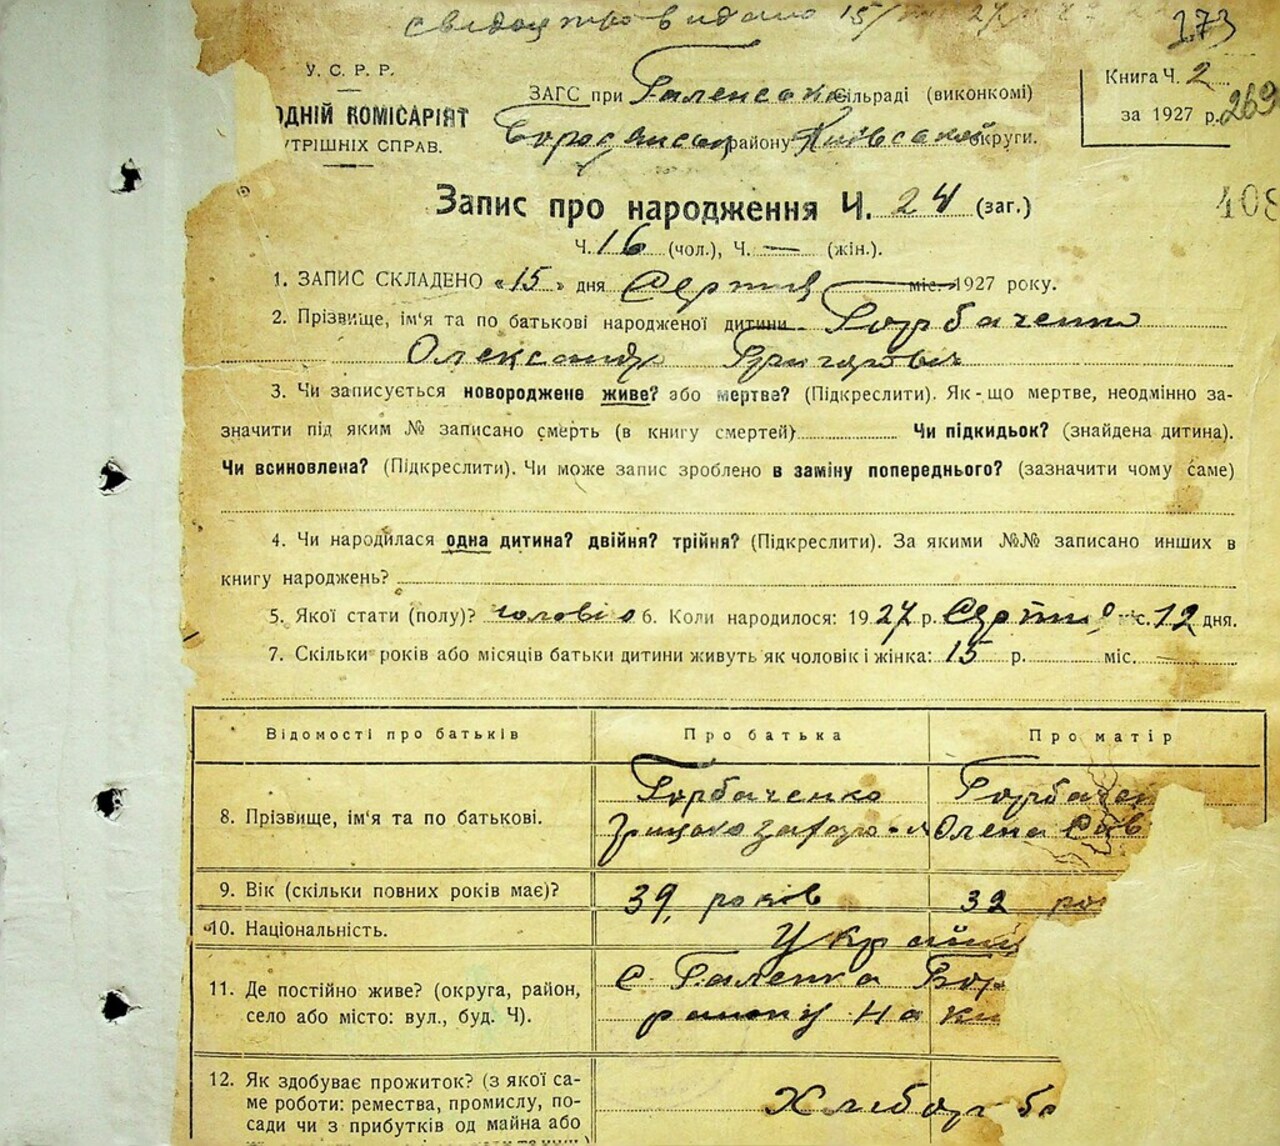 свидоцтво видано 15/
273
У. С. Р. Р.
ОДНІЙ КОМІСАРІЯТ
УТРІШНІХ СПРАВ.
ЗАГС при Галенсако сільраді (виконкомі)
району Київської округи.
Книга Ч. 2
за 1927 р. 269
408
Запис про народження Ч. 24 (заг.)
Ч. 16 (чол.), Ч. — (жін.).
1. ЗАПИС СКЛАДЕНО «15» дня Серпня міс. 1927 року.
2. Прізвище, ім'я та по батькові народженої дитини Горбаченко
Олександр Григорович
3. Чи записується новороджене живе? або мертве? (Підкреслити). Як-що мертве, неодмінно за-
значити під яким № записано смерть (в книгу смертей) Чи підкидьок? (знайдена дитина).
Чи всиновлена? (Підкреслити). Чи може запис зроблено в заміну попереднього? (зазначити чому саме)
4. Чи народилася одна дитина? двійня? трійня? (Підкреслити). За якими №№ записано инших в
книгу народжень?
5. Якої стати (полу)? чоловіо 6. Коли народилося: 1927 р. Серпня міс. 12 дня.
7. Скільки років або місяців батьки дитини живуть як чоловік і жінка: 15 р. міс.
Відомості про батьків Про батька Про матір
8. Прізвище, ім'я та по батькові. Горбаченко Горбачен
Грицько Олена Сав
9. Вік (скільки повних років має)? 39, років 32 ро
10. Національність. Україн
11. Де постійно живе? (округа, район, с. Галенка Бор
село або місто: вул., буд. Ч). району на Ки
12. Як здобуває прожиток? (з якої са-
ме роботи: ремества, промислу, по- Хлибороб
сади чи з прибутків од майна або